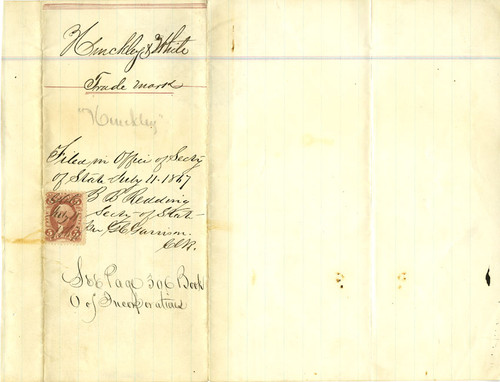 Hinckley & White
Trade mark
"Hinckley"
Filed in Office of Secty
of State July 11. 1867
B B Redding
Secty of State
Per
Clk.
See Page 306 Book
O of Incorporations